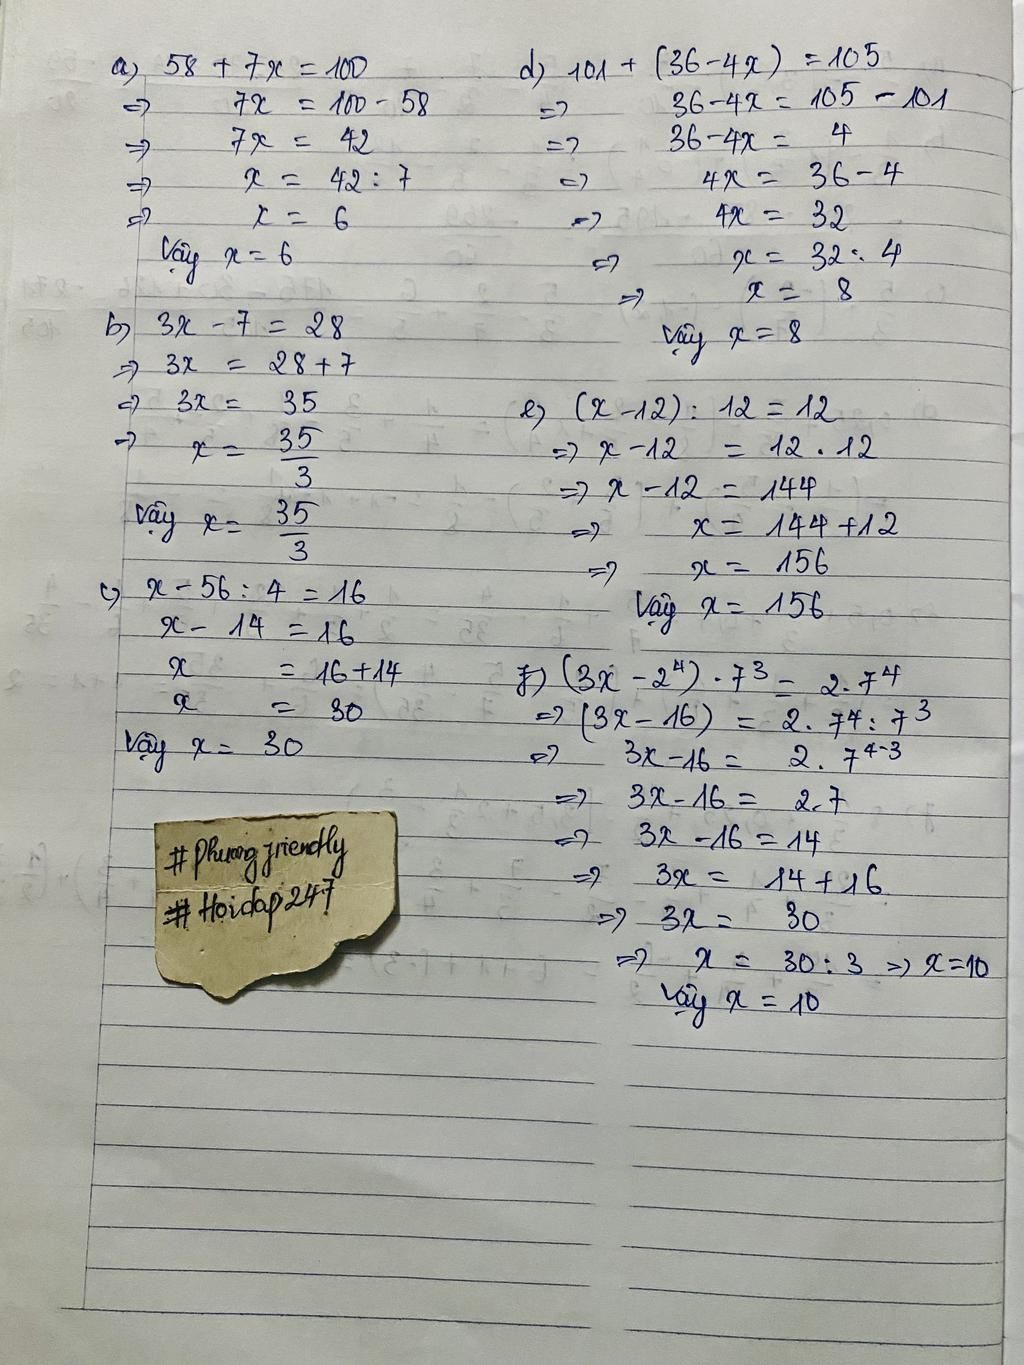 a) 58 + 7x = 100
=> 7x = 100 - 58
=> 7x = 42
=> x = 42 : 7
=> x = 6
Vậy x = 6
b) 3x - 7 = 28
=> 3x = 28 + 7
=> 3x = 35
=> x = 35/3
Vậy x = 35/3
c) x - 56 : 4 = 16
x - 14 = 16
x = 16 + 14
x = 30
Vậy x = 30
# Phuong friendly
# Hoidap247
d) 101 + (36 - 4x) = 105
=> 36 - 4x = 105 - 101
=> 36 - 4x = 4
=> 4x = 36 - 4
=> 4x = 32
=> x = 32 : 4
=> x = 8
Vậy x = 8
e) (x - 12) : 12 = 12
=> x - 12 = 12 . 12
=> x - 12 = 144
=> x = 144 + 12
=> x = 156
Vậy x = 156
f) (3x - 2⁴) . 7³ = 2 . 7⁴
=> (3x - 16) = 2 . 7⁴ : 7³
=> 3x - 16 = 2 . 7⁴⁻³
=> 3x - 16 = 2.7
=> 3x - 16 = 14
=> 3x = 14 + 16
=> 3x = 30
=> x = 30 : 3 => x = 10
Vậy x = 10